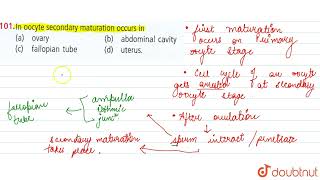 101. In oocyte secondary maturation occurs in
(a) ovary (b) abdominal cavity
(c) fallopian tube (d) uterus.
• first maturation
occurs on primary
oocyte stage
• Cell cycle of an oocyte
gets arrested at secondary
oocyte stage
• After ovulation
sperm interact / penetrate
fallopian tube
ampulla
isthmic
junc
secondary maturation
takes place.
doubtnut